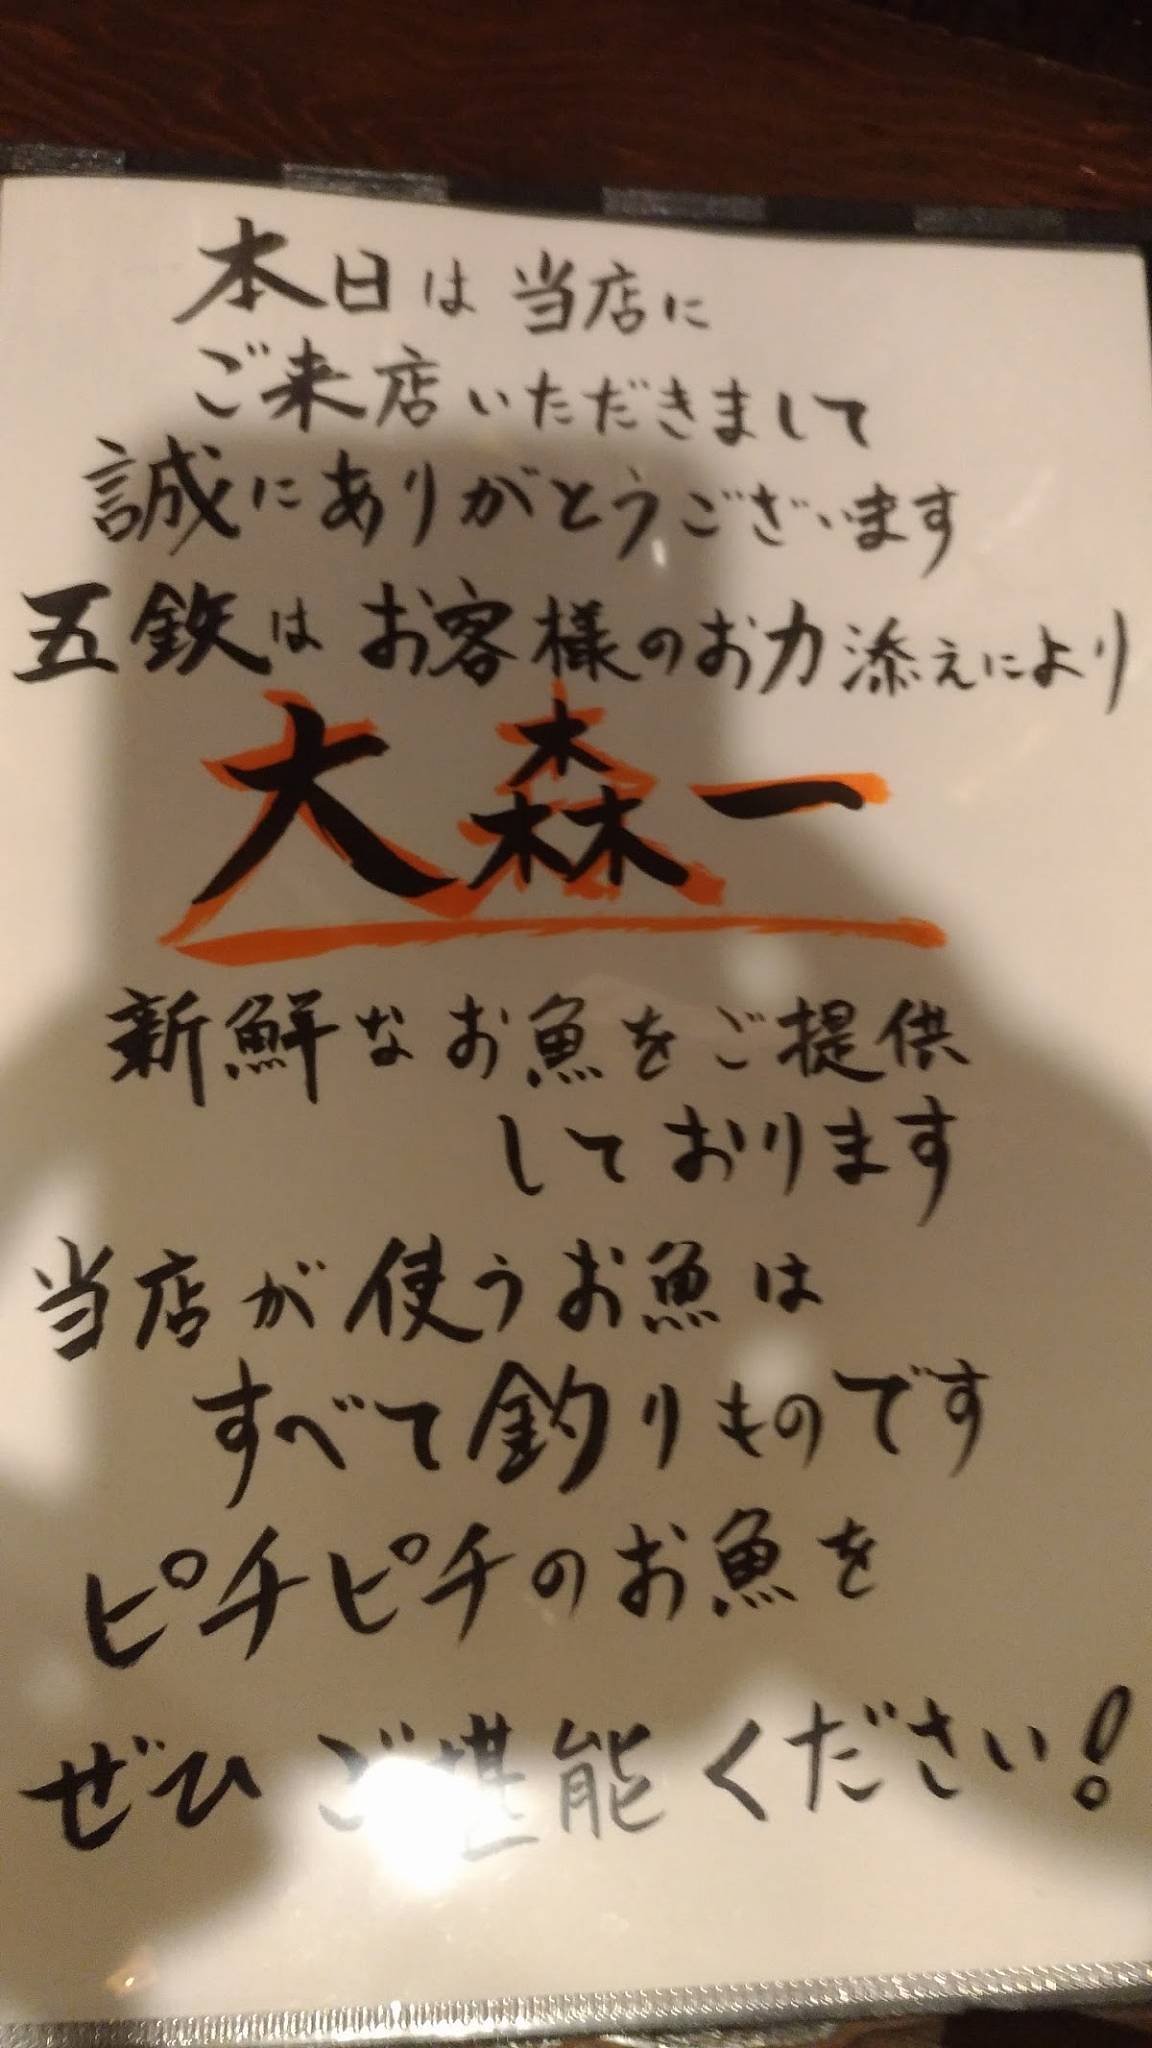 本日は当店に
ご来店いただきまして
誠にありがとうございます
五鉄はお客様のお力添えにより
大森一
新鮮なお魚をご提供
しております
当店が使うお魚は
すべて釣りものです
ピチピチのお魚を
ぜひご堪能ください!